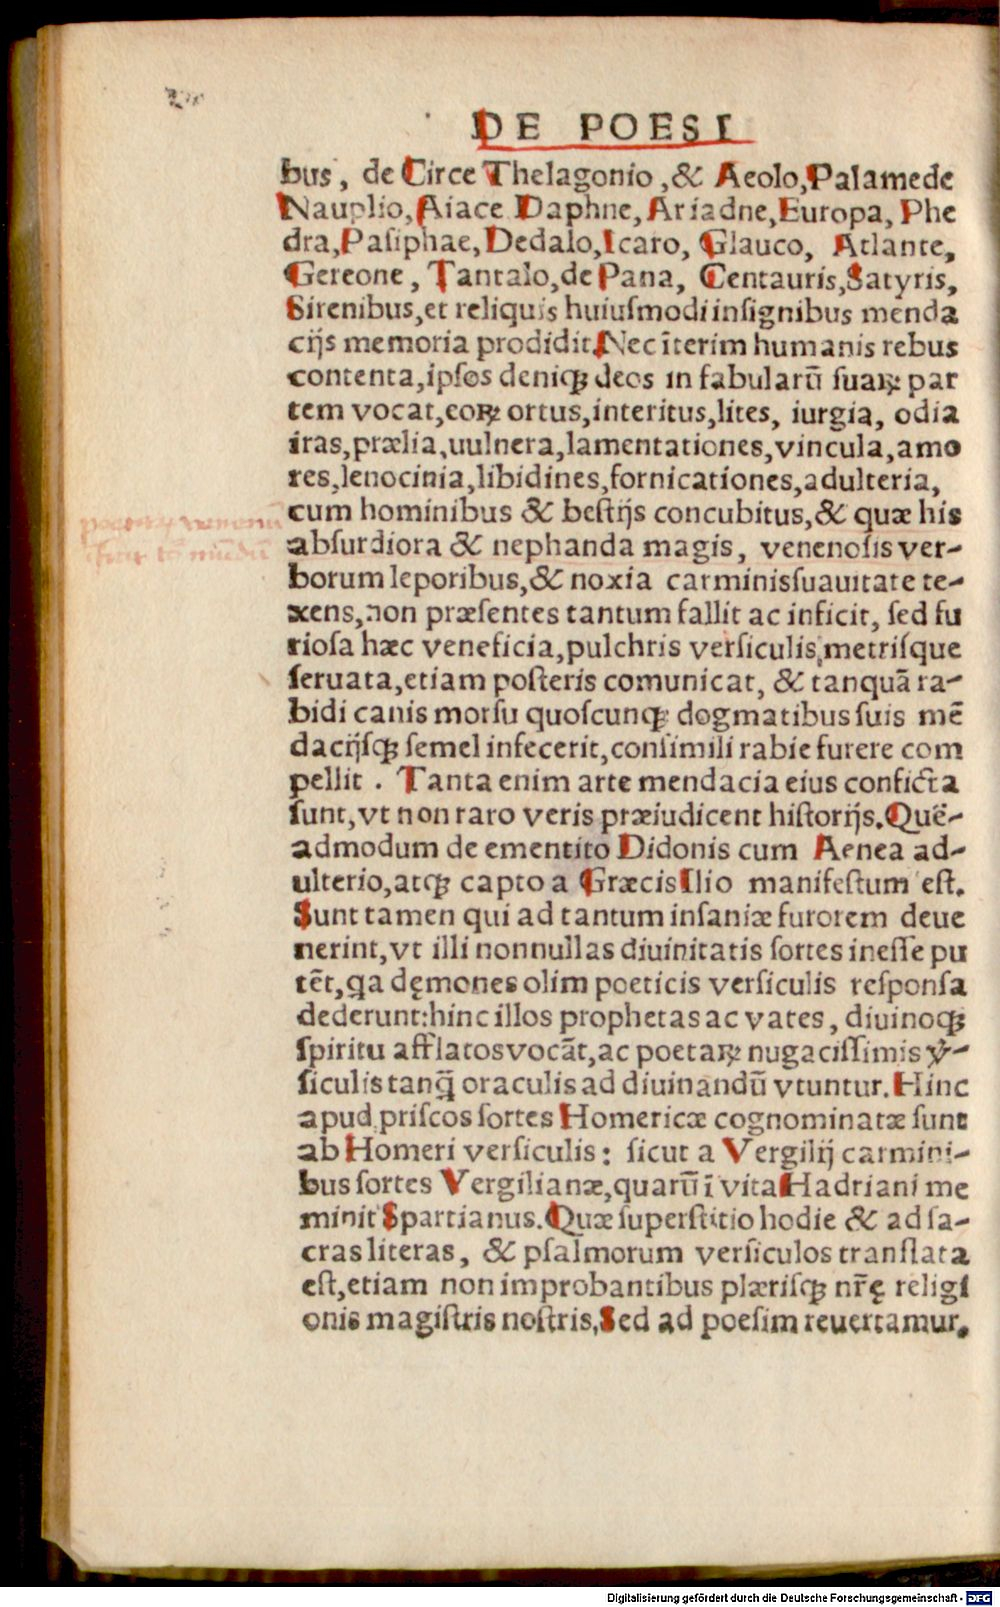 DE POESI
bus, de Circe Thelagonio, & Aeolo, Palamede
Nauplio, Aiace Daphne, Ariadne, Europa, Phe
dra, Pasiphae, Dedalo, Icaro, Glauco, Atlante,
Gereone, Tantalo, de Pana, Centauris, Satyris,
Sirenibus, et reliquis huiuſmodi inſignibus menda
cijs memoria prodidit. Nec īterim humanis rebus
contenta, ipſos deniqꝫ deos in fabularū ſuaꝝ par
tem vocat, eoꝝ ortus, interitus, lites, iurgia, odia
iras, prælia, uulnera, lamentationes, vincula, amo
res, lenocinia, libidines, fornicationes, adulteria,
cum hominibus & beſtijs concubitus, & quæ his
abſurdiora & nephanda magis, venenoſis ver-
borum leporibus, & noxia carminis ſuauitate te-
xens, non præſentes tantum fallit ac inficit, ſed fu
rioſa hæc veneficia, pulchris verſiculis, metriſque
ſeruata, etiam poſteris comunicat, & tanquā ra-
bidi canis morſu quoſcunqꝫ dogmatibus ſuis mē
dacijſqꝫ ſemel infecerit, conſimili rabie furere com
pellit. Tanta enim arte mendacia eius conficta
ſunt, vt non raro veris præiudicent hiſtorijs. Quē-
admodum de ementito Didonis cum Aenea ad-
ulterio, atqꝫ capto a Græcis Ilio manifeſtum eſt.
Sunt tamen qui ad tantum inſaniæ furorem deue
nerint, vt illi nonnullas diuinitatis ſortes ineſſe pu
tēt, qa dęmones olim poeticis verſiculis reſponſa
dederunt: hinc illos prophetas ac vates, diuinoqꝫ
ſpiritu afflatos vocāt, ac poetaꝝ nugaciſſimis ꝟ-
ſiculis tanq̄ oraculis ad diuinandū vtuntur. Hinc
apud priſcos ſortes Homericæ cognominatæ ſunt
ab Homeri verſiculis: ſicut a Vergilij carmini-
bus ſortes Vergilianæ, quarū ī vita Hadriani me
minit Spartianus. Quæ ſuperſtitio hodie & ad ſa-
cras literas, & pſalmorum verſiculos translata
eſt, etiam non improbantibus plæriſqꝫ nr̄ę religi
onis magiſtris noſtris, Sed ad poeſim reuertamur.
Digitalisierung gefördert durch die Deutsche Forschungsgemeinschaft - DFG